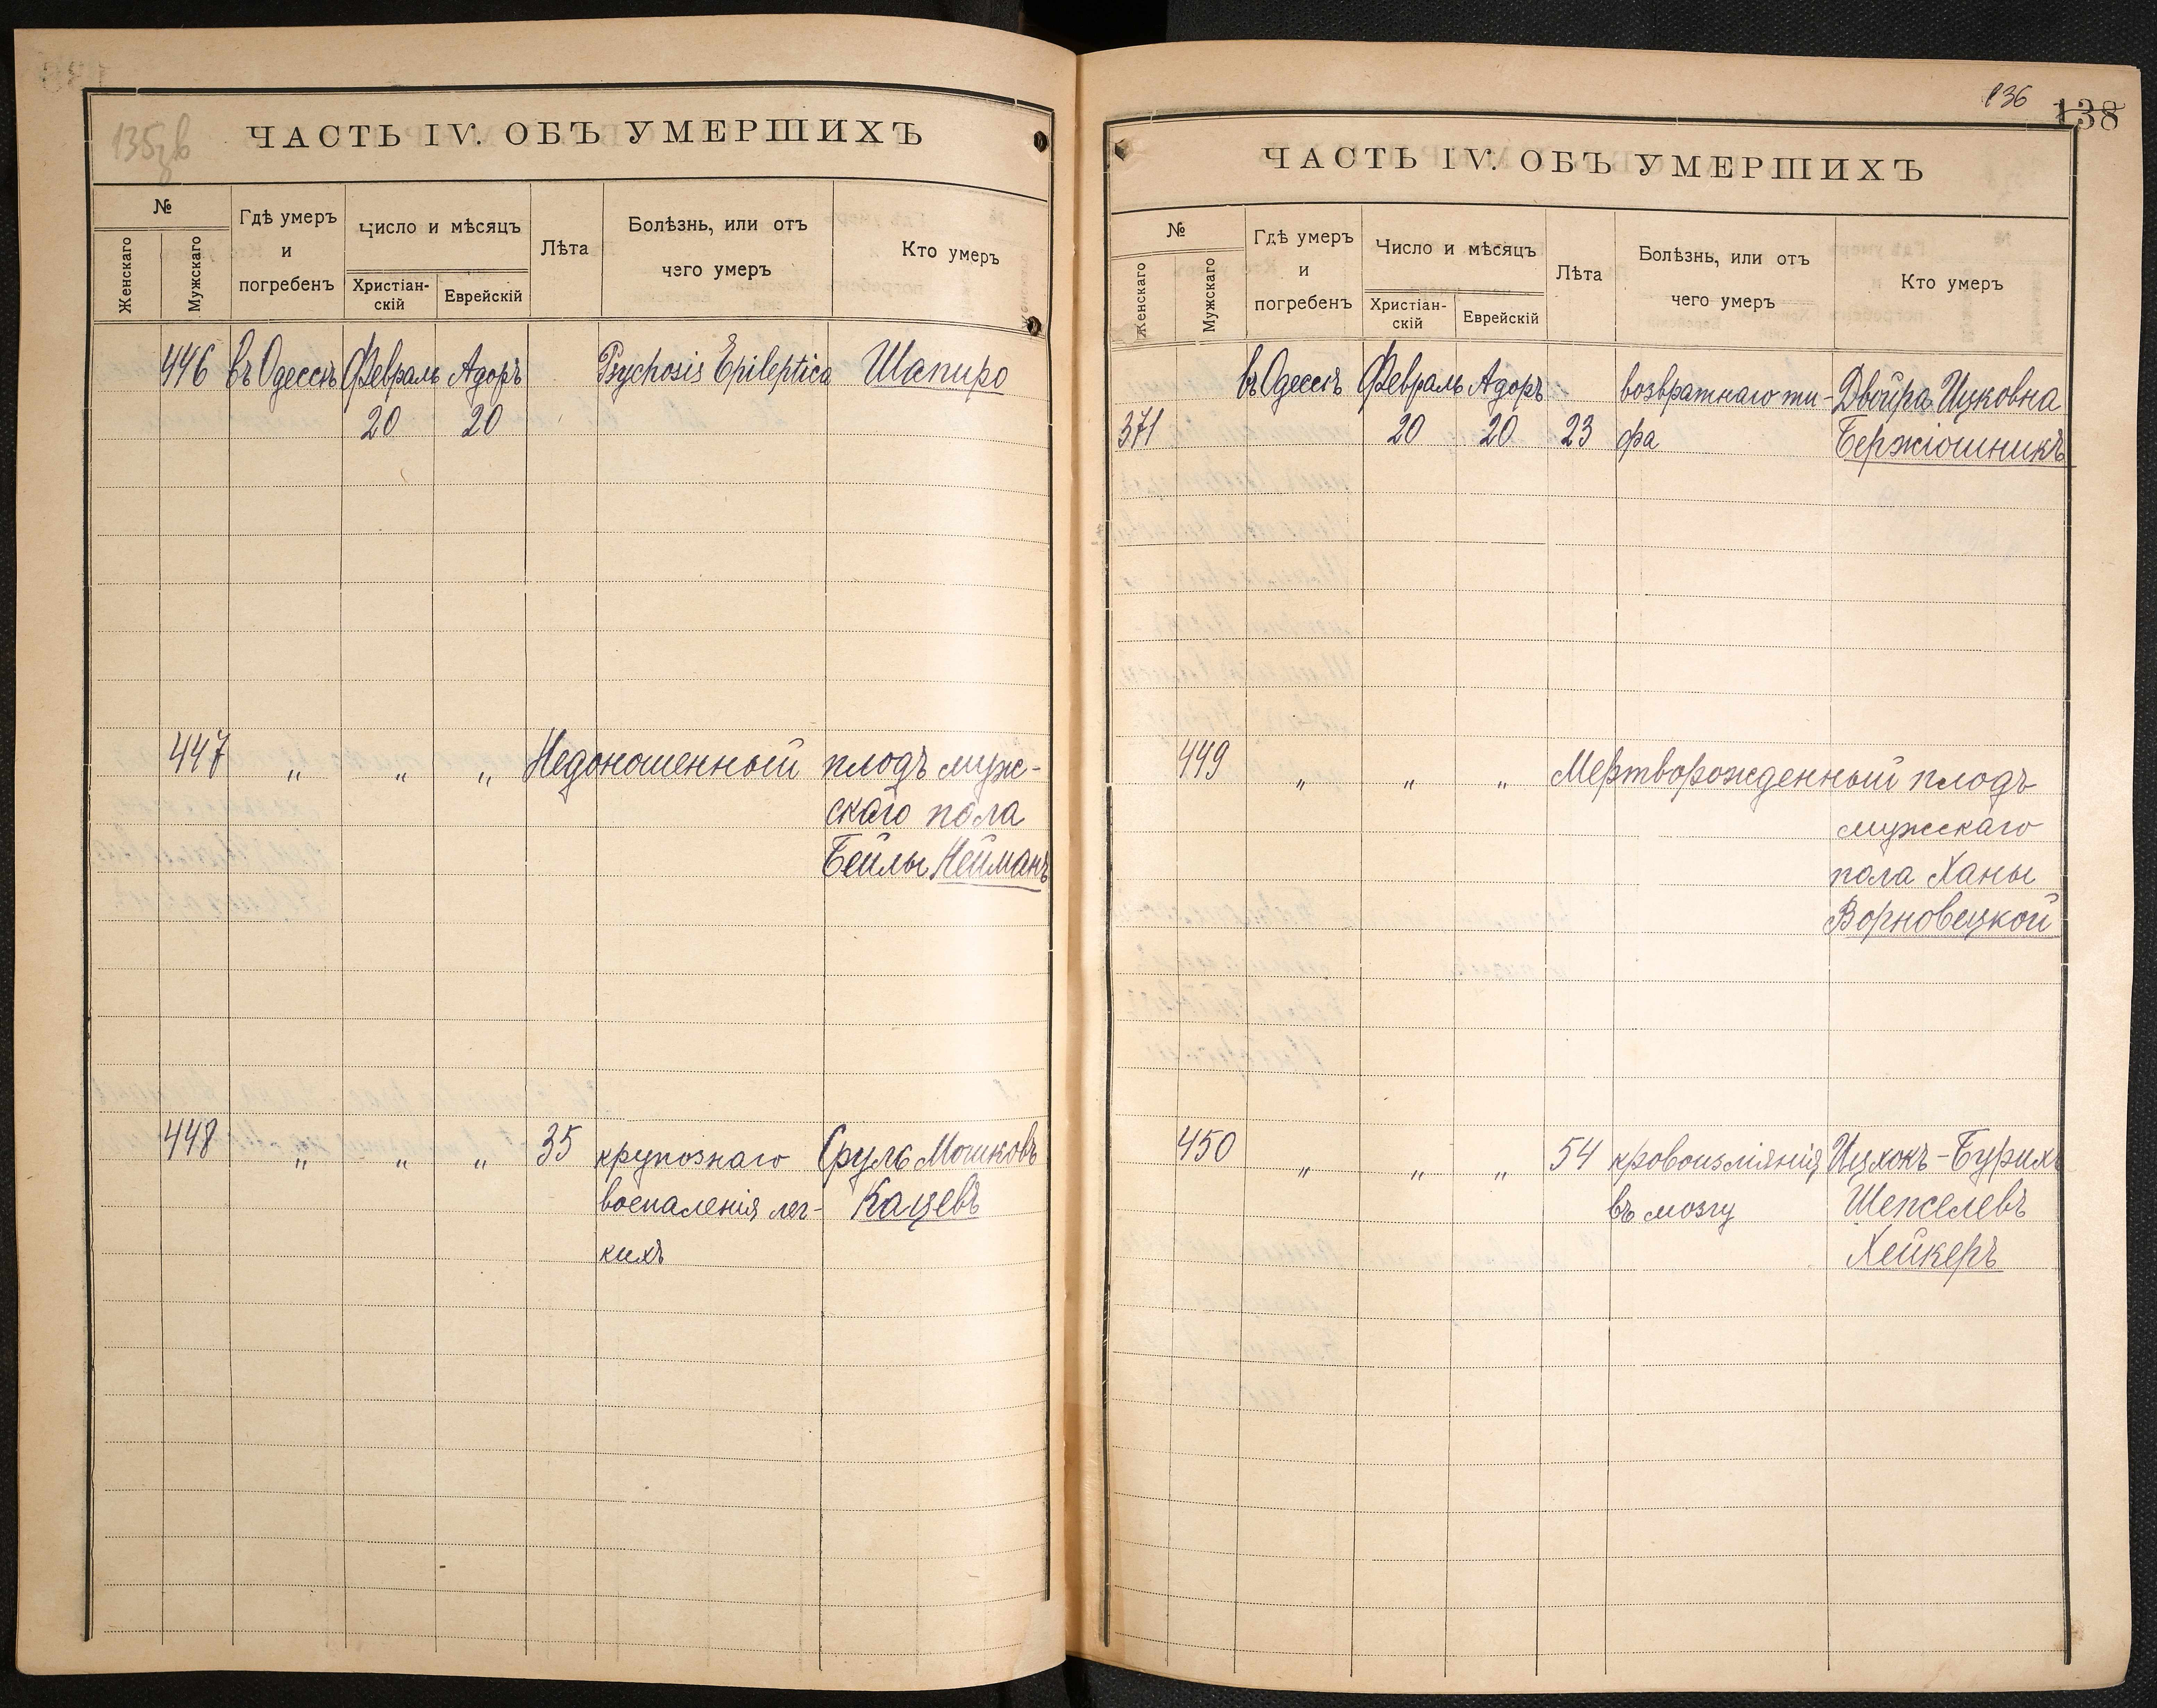 135 об
ЧАСТЬ IV. ОБЪ УМЕРШИХЪ
№
Женскаго
Мужскаго
Гдѣ умеръ
и
погребенъ
Число и мѣсяцъ
Христіан-
скій
Еврейскій
Лѣта
Болѣзнь, или отъ
чего умеръ
Кто умеръ
446 въ Одессѣ Февраль Адоръ Psychosis Epileptica Шапиро
20 20
447 " " " Недоношенный плодъ муж-
скаго пола
Бейлы Нейманъ
448 " " " 35 крупознаго Сруль Мошковъ
воспаленія лег- Кацевъ
кихъ
136
138
ЧАСТЬ IV. ОБЪ УМЕРШИХЪ
№
Женскаго
Мужскаго
Гдѣ умеръ
и
погребенъ
Число и мѣсяцъ
Христіан-
скій
Еврейскій
Лѣта
Болѣзнь, или отъ
чего умеръ
Кто умеръ
въ Одессѣ Февраль Адоръ возвратнаго ти- Двойра Ицковна
371 20 20 23 фа Бержіошникъ
449 " " " Мертворожденный плодъ
мужскаго
пола Ханы
Ворновецкой
450 " " " 54 кровоизліянія Ицхокъ-Бурихъ
въ мозгу Шепселевъ
Хейкеръ